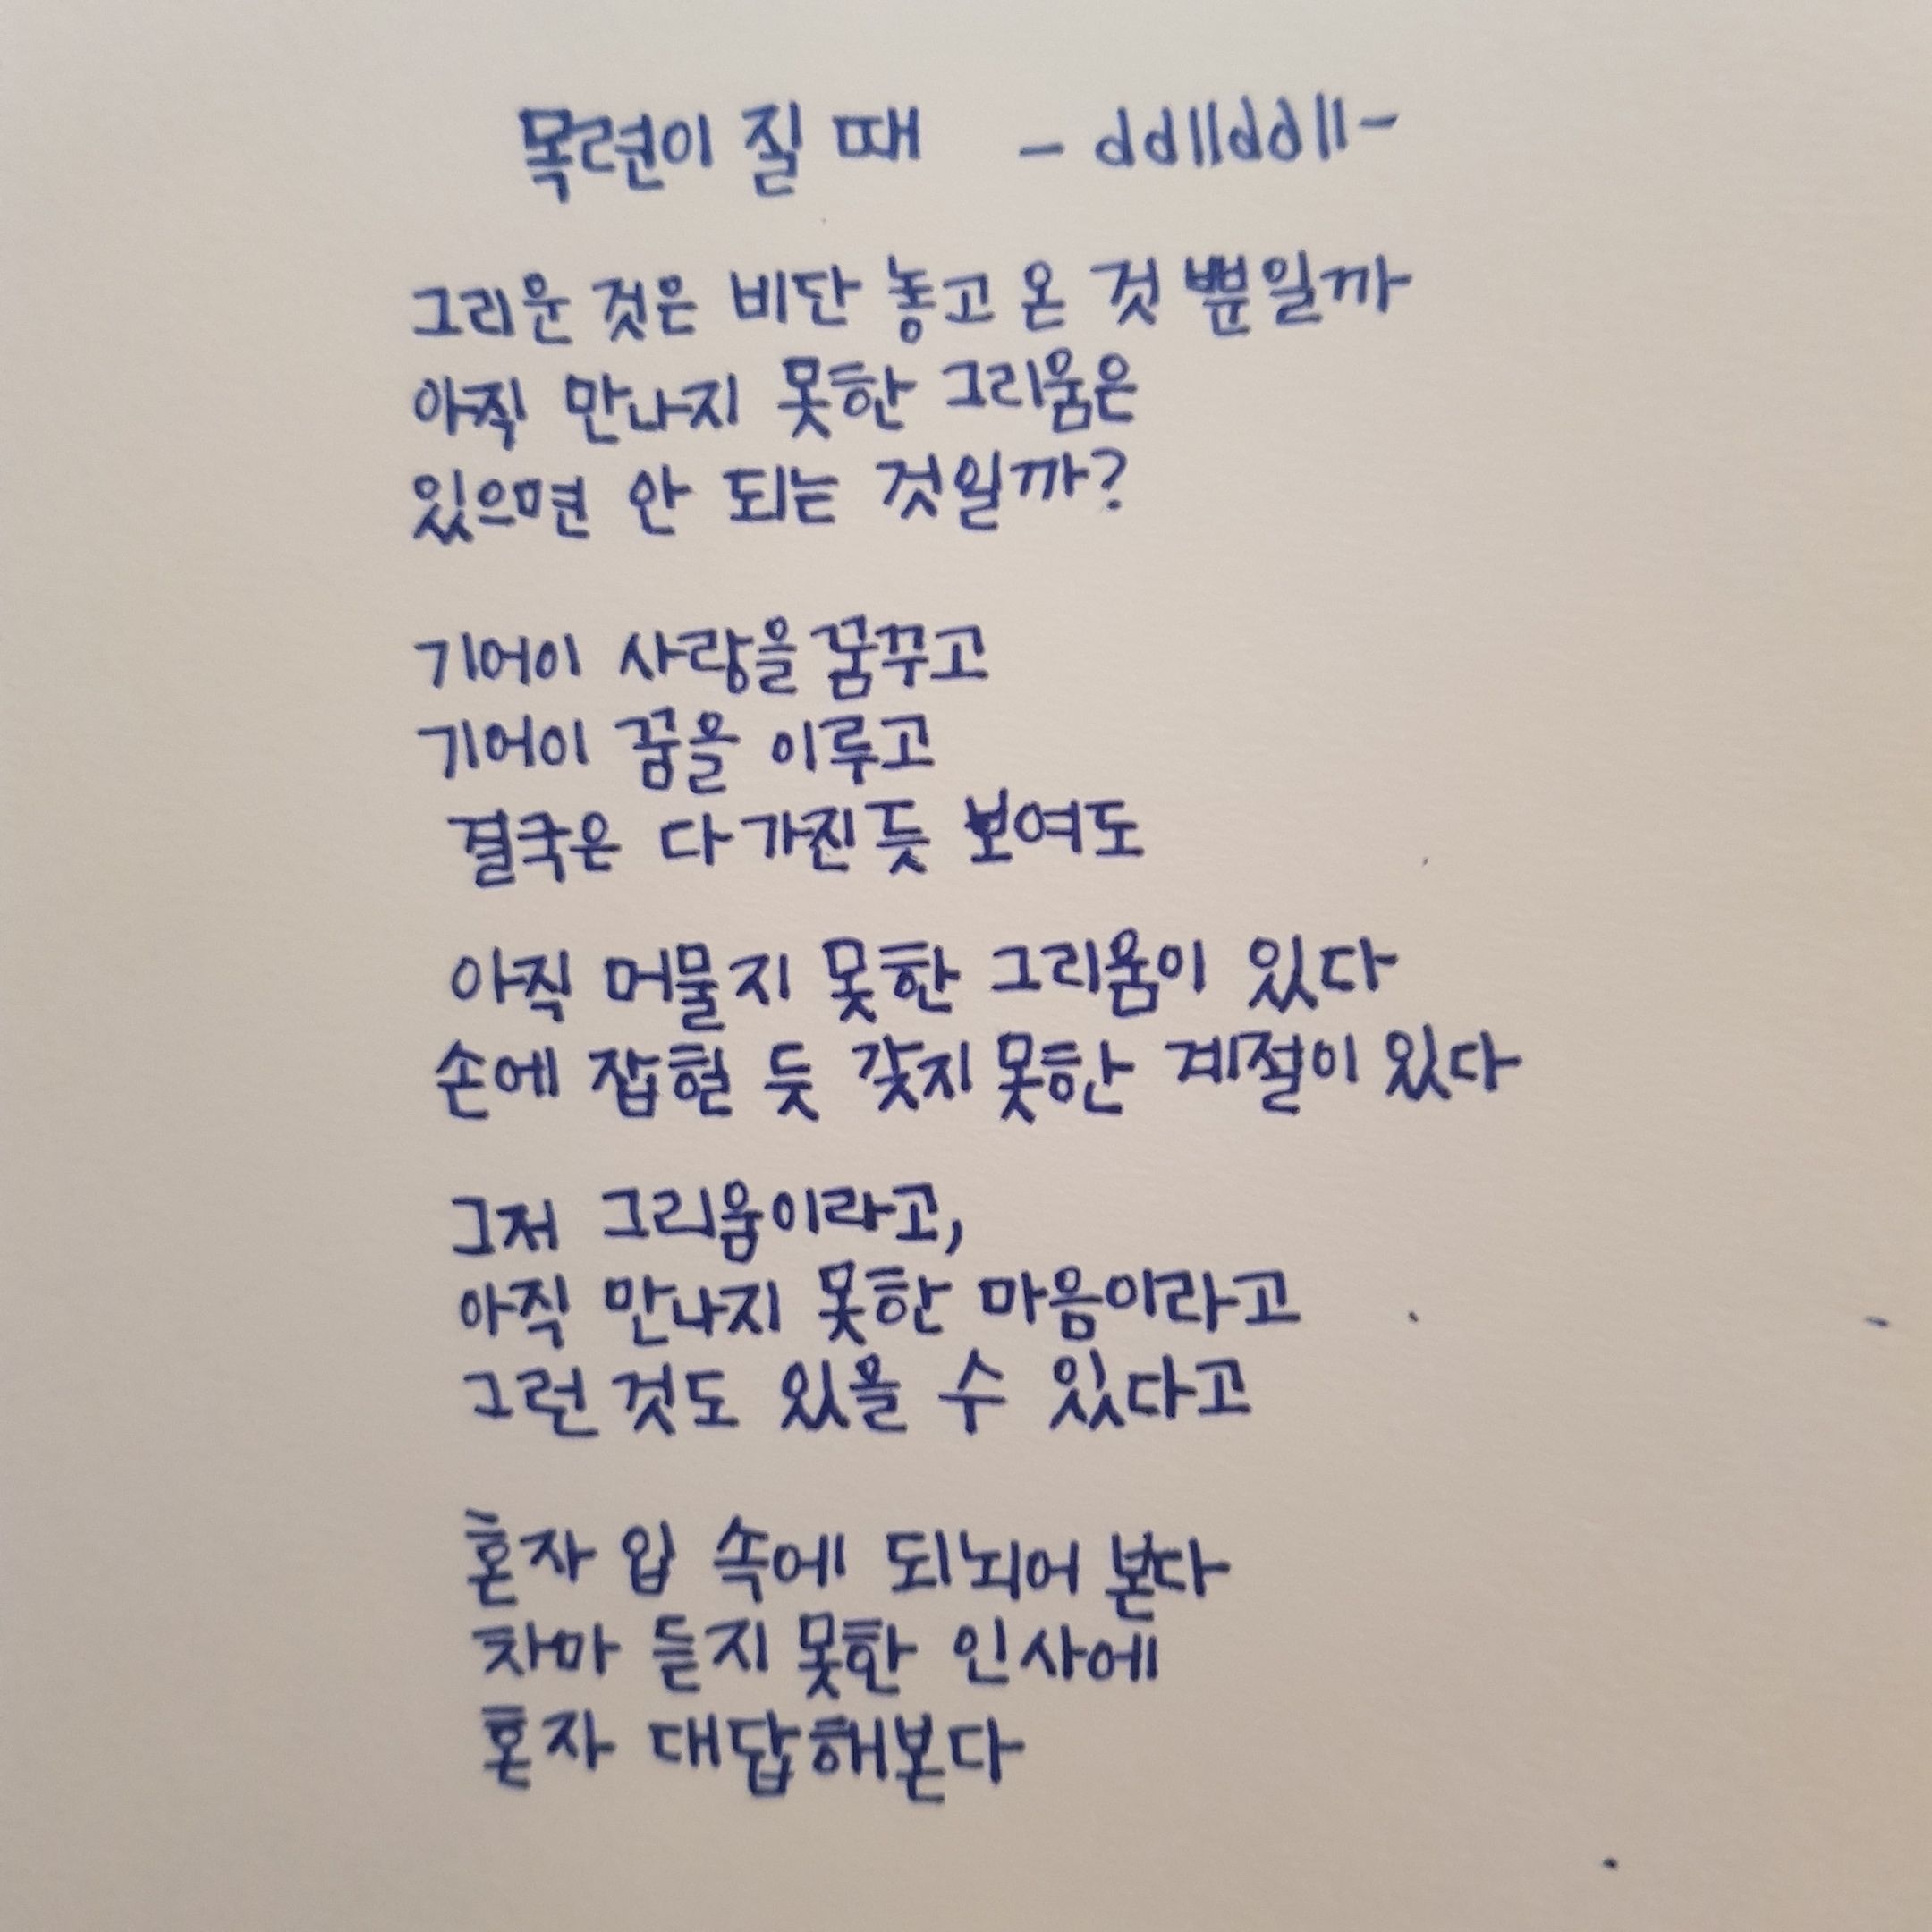 목련이 질 때 - ddllddll-
그리운 것은 비단 놓고 온 것 뿐일까
아직 만나지 못한 그리움은
있으면 안 되는 것일까?
기어이 사랑을 꿈꾸고
기어이 꿈을 이루고
결국은 다 가진 듯 보여도
아직 머물지 못한 그리움이 있다
손에 잡힌 듯 갖지 못한 계절이 있다
그저 그리움이라고,
아직 만나지 못한 마음이라고
그런 것도 있을 수 있다고
혼자 입 속에 되뇌어 본다
차마 듣지 못한 인사에
혼자 대답해본다